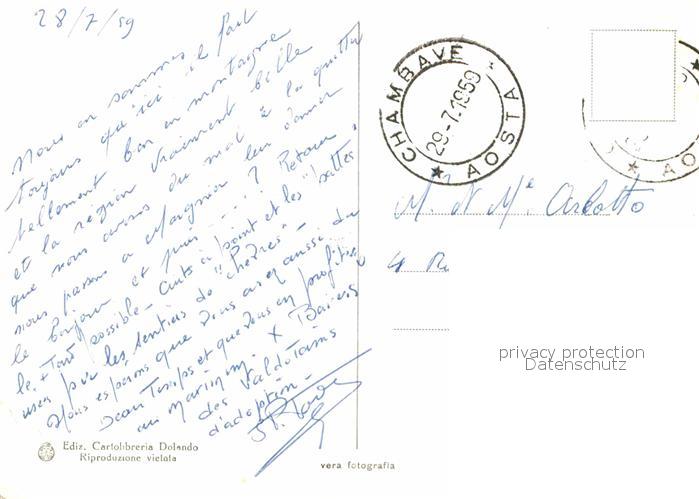 28/7/59
Nous en sommes
toujours qu'ici il fait
tellement bon en montagne
et la région vraiment belle
que nous avons du mal à la quitter
nous passons à leur donner
le bonjour et puis ...? Retour
le + Tard possible - cuits à point et les "lattes"
usées par les sentiers de "chèvres" -
Nous espérons que vous avez aussi du
beau Temps et que vous en profitez
au maximum. X Baisers
des Valdotains
d'adoption -
CHAMBAVE
29-7.1959
AOSTA
AO
M. et Me Ardotto
4 R
privacy protection
Datenschutz
Ediz. Cartolibreria Dolando
Riproduzione vietata
vera fotografia